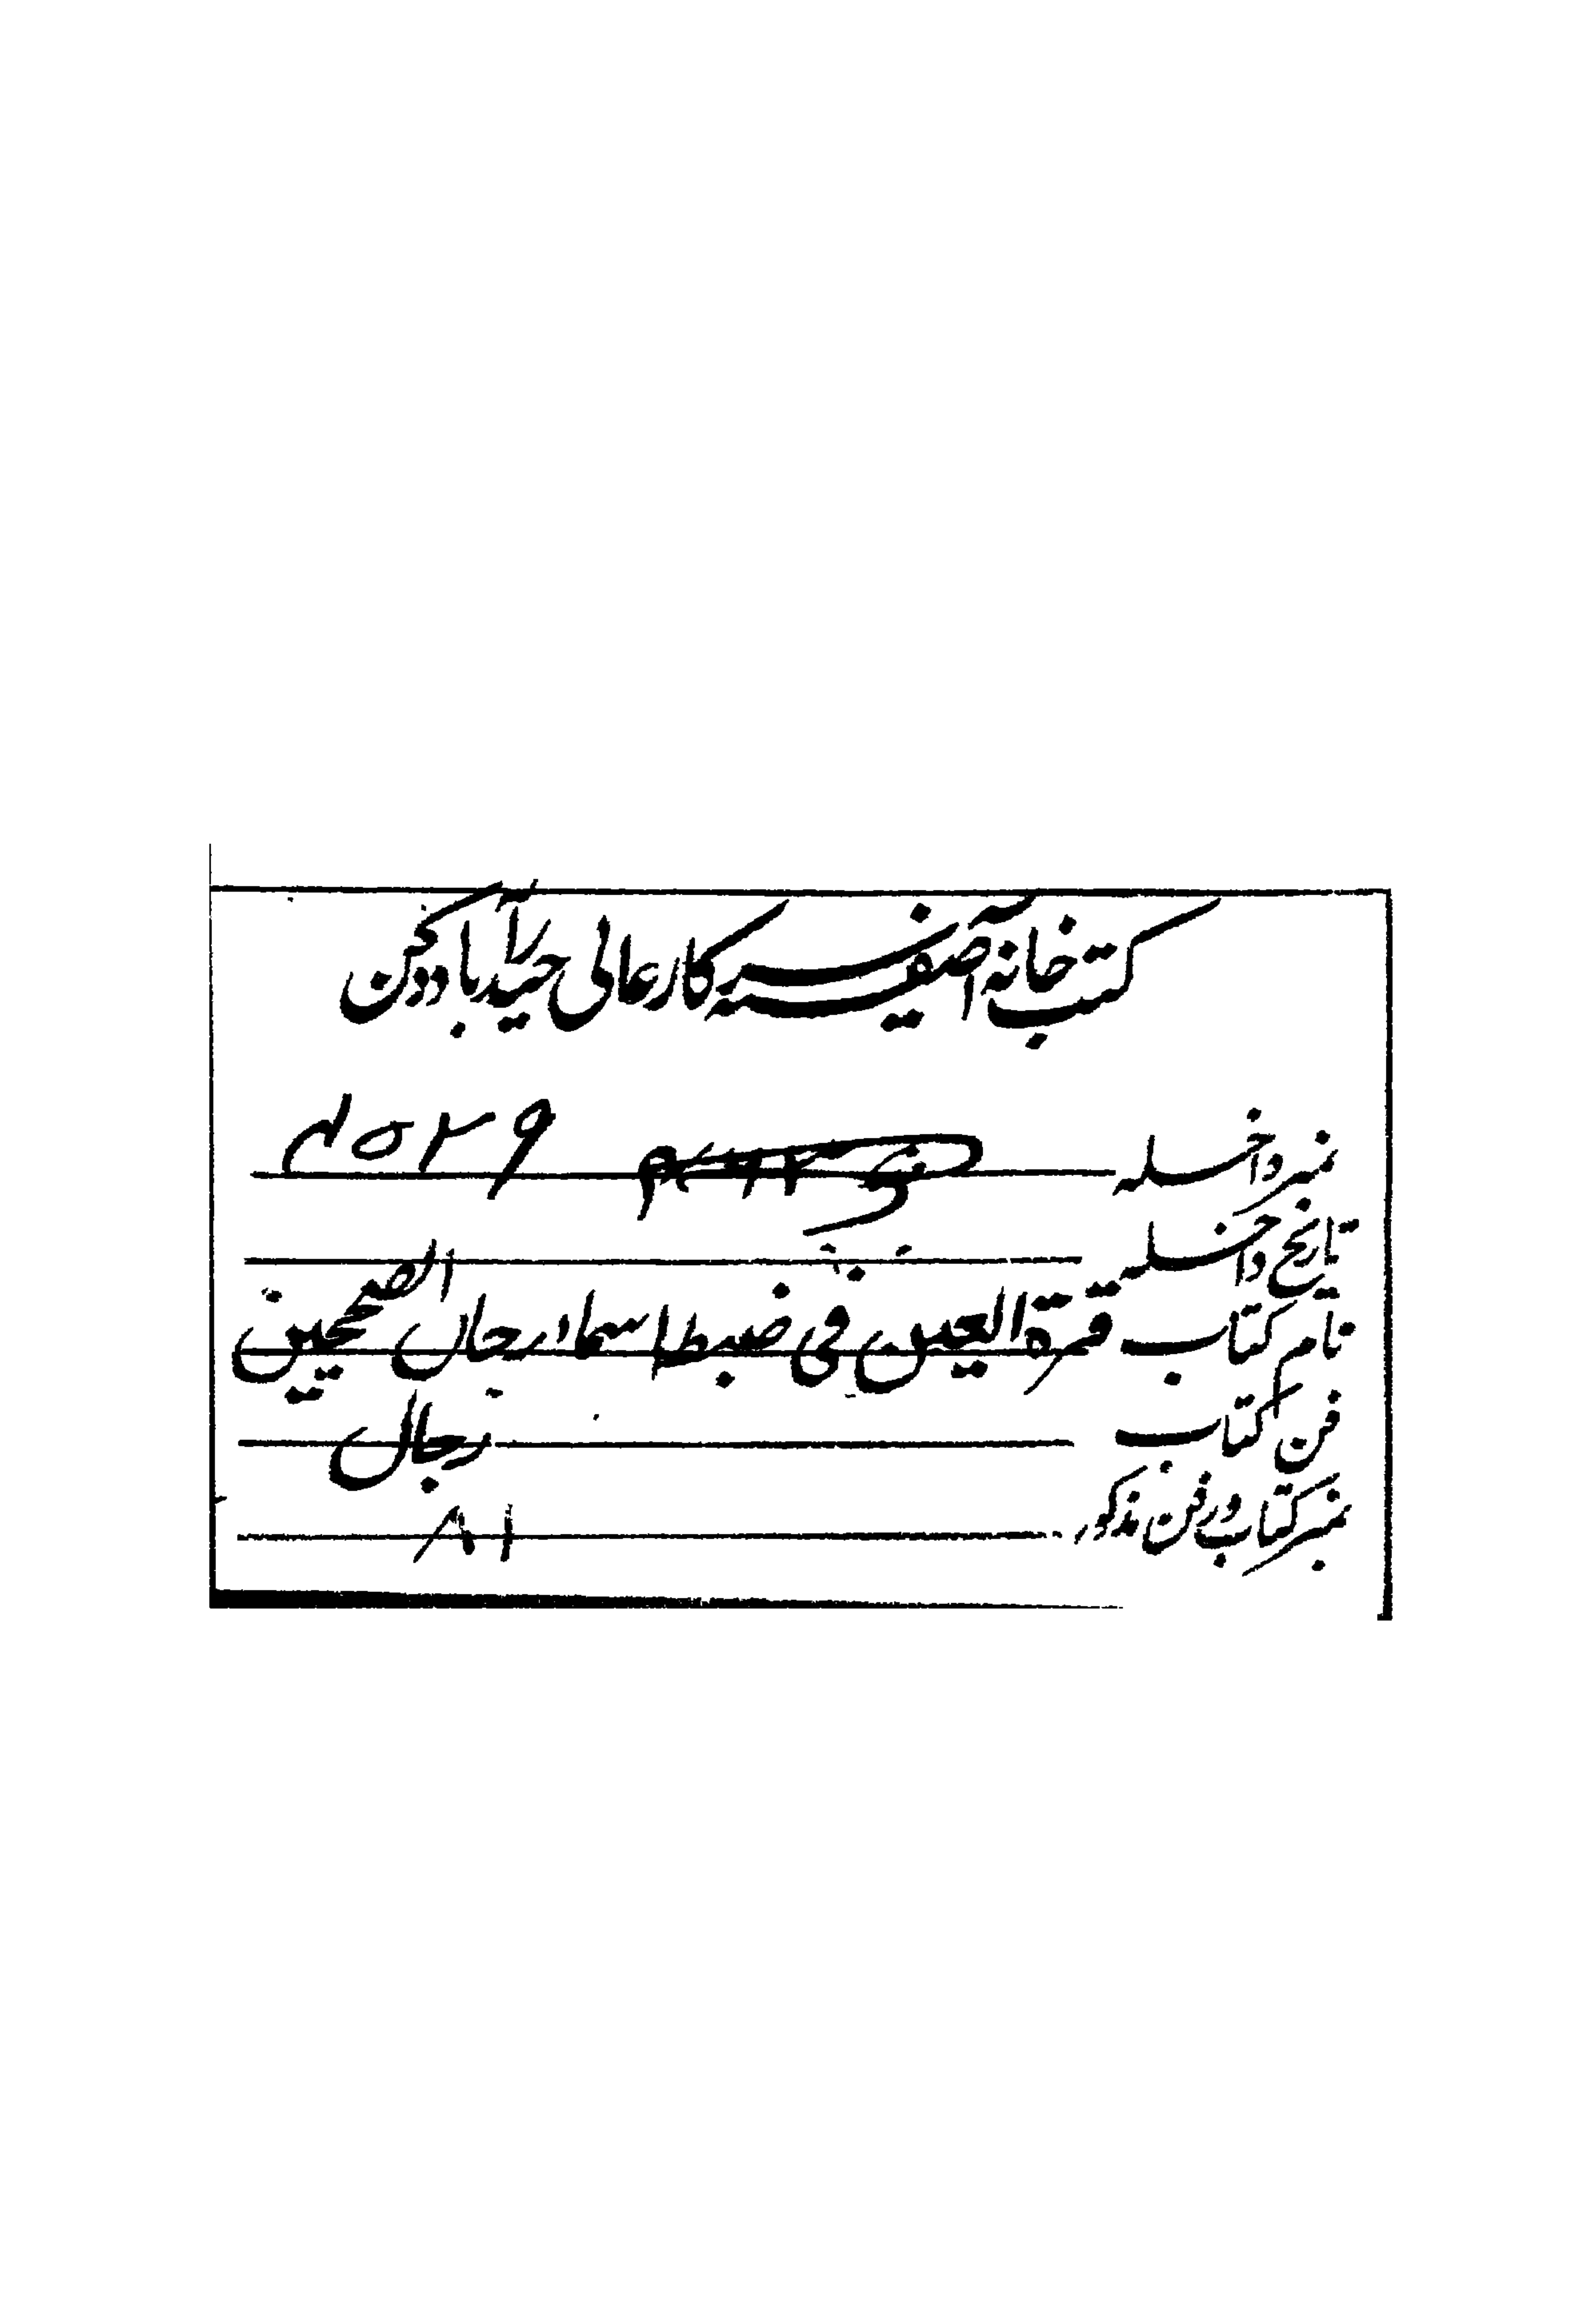 کتب خانہ آصفیہ سرکار عالی حیدرآباد دکن
نمبر داخلہ
تاریخ داخلہ
نام کتاب قرة العين في ضبط اسماء رجال الصحيحين
فن کتاب رجال
نمبر کتاب در فن مذکور ٨١